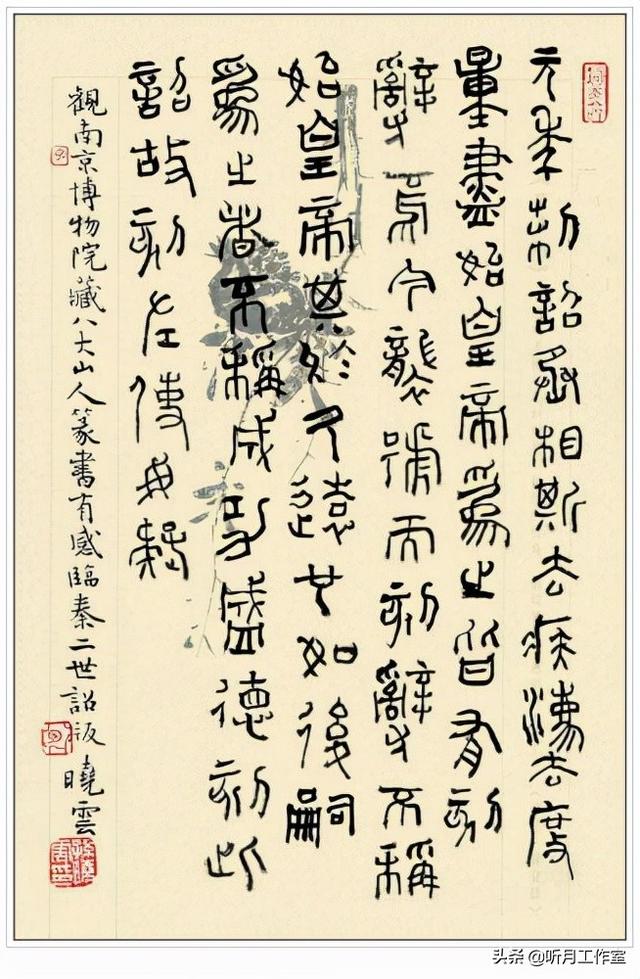 元年制詔丞相斯去疾灋度
量盡始皇帝爲之皆有刻
辭焉今襲號而刻辭不稱
始皇帝其於久遠也如後嗣
爲之者不稱成功盛德刻此
詔故刻左使毋疑
觀南京博物院藏八大山人篆書有感臨秦二世詔版 曉雲
头条 @听月工作室